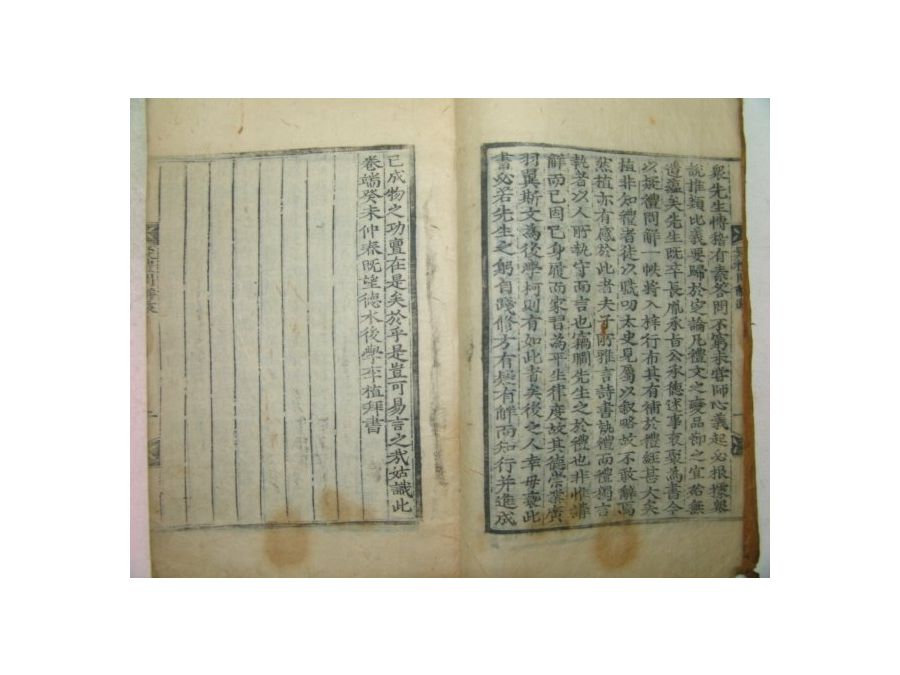 衆先生慱稽有素答問不窮未甞師心義起必根據衆
說推類比義要歸於定論凡禮文之變品節之宜殆無
遺蘊矣先生既卒長胤承旨公承德述事裒聚爲書令
以疑禮問解一帙將入梓行布其有補於禮経甚大矣
植非知禮者徒以職叨太史見屬以叙略故不敢辭焉
然植亦有感於此者夫子所雅言詩書執禮而禮獨言
執者以人所執守而言也竊覸先生之於禮也非惟講
解而已因已身履而家習爲平生律度故其德崇業廣
羽翼斯文爲後學柯則有如此者矣後之人幸毋此
書必若先生之躬自踐修方有起有解而知行并進成
已成物之功亶在是矣於乎是豈可易言之㢤姑識此
卷端癸未仲春既望德水後學李植拜書